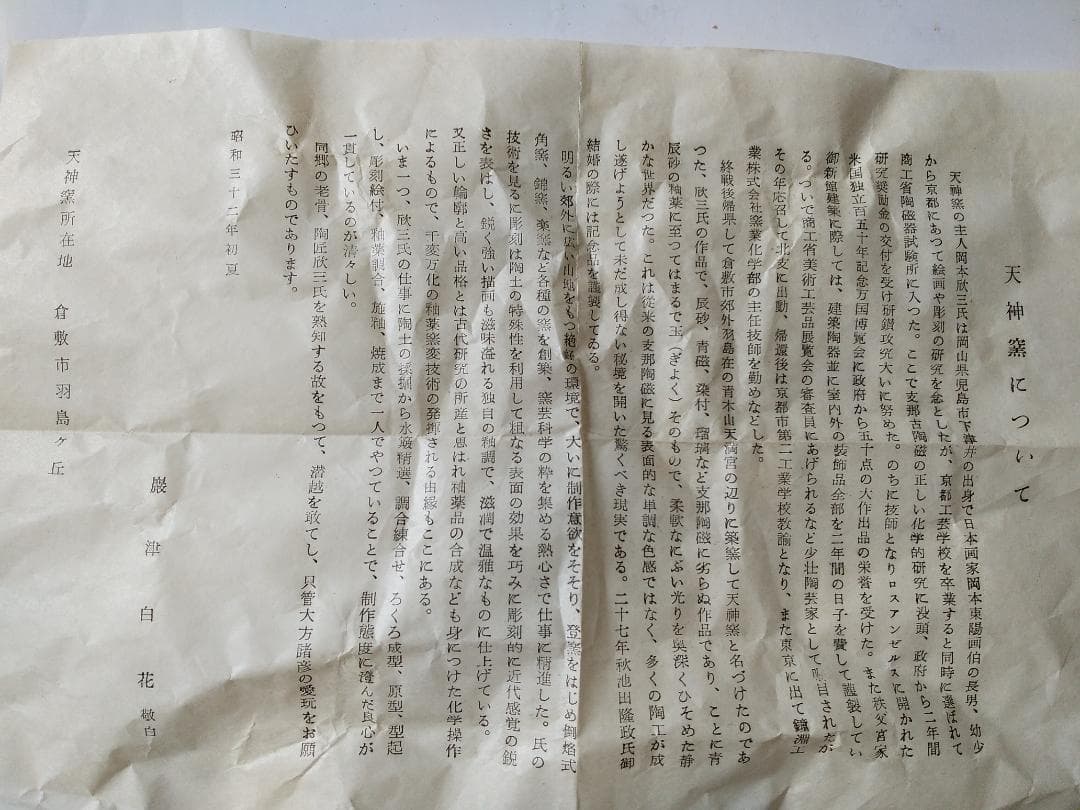 天神窯について
天神窯の主人岡本欣三氏は岡山県児島市下津井の出身で日本画家岡本東陽画伯の長男、幼少
から京都にあつて絵画や彫刻の研究を念としたが、京都工芸学校を卒業すると同時に選ばれて
商工省陶磁器試験所に入つた。ここで支那古陶磁の正しい化学的研究に没頭、政府から二年間
研究奨励金の交付を受け研鑚攻究大いに努めた。のちに技師となりロスアンゼルスに開かれた
米国独立百五十年記念万国博覧会に政府から五十点の大作出品の栄誉を受けた。また秩父宮家
御新館建築に際しては、建築陶器並に室内外の装飾品全部を二年間の日子を費して謹製してい
る。ついで商工省美術工芸品展覧会の審査員にあげられるなど少壮陶芸家として嘱目されたが
その年応召して北支に出動、帰還後は京都市第二工業学校教諭となり、また東京に出て鐘淵工
業株式会社窯業化学部の主任技師を勤めなどした。
終戦後帰県して倉敷市郊外羽島在の青木山天満宮の辺りに築窯して天神窯と名づけたのであ
つた、欣三氏の作品で、辰砂、青磁、染付、瑠璃など支那陶磁に劣らぬ作品であり、ことに青
辰砂の釉薬に至つてはまるで玉（ぎよく）そのもので、柔軟なにぶい光りを奥深くひそめた静
かな世界だつた。これは従来の支那陶磁に見る表面的な単調な色感ではなく、多くの陶工が成
し遂げようとして未だ成し得ない秘境を開いた驚くべき現実である。二十七年秋池田隆政氏御
結婚の際には記念品を謹製してゐる。
明るい郊外に広い山地をもつ絶好の環境で、大いに制作意欲をそそり、登窯をはじめ倒焔式
角窯、錦窯、楽窯など各種の窯を創築、窯芸科学の粋を集める熱心さで仕事に精進した。氏の
技術を見るに彫刻は陶土の特殊性を利用して粗なる表面の効果を巧みに彫刻的に近代感覚の鋭
さを表はし、鋭く強い描画も滋味溢れる独自の釉調で、滋潤で温雅なものに仕上げている。
又正しい輪廓と高い品格とは古代研究の所産と思はれ釉薬品の合成なども身につけた化学操作
によるもので、千変万化の釉薬窯変技術の発揮される由縁もここにある。
いま一つ、欣三氏の仕事に陶土の採掘から水簸精選、調合練合せ、ろくろ成型、原型、型起
し、彫刻絵付、釉薬調合、施釉、焼成まで一人でやつていることで、制作態度に澄んだ良心が
一貫しているのが清々しい。
同郷の老骨、陶匠欣三氏を熟知する故をもつて、潜越を敢てし、只管大方諸彦の愛玩をお願
ひいたすものであります。
昭和三十二年初夏
巌津白花 敬白
天神窯所在地 倉敷市羽島ヶ丘